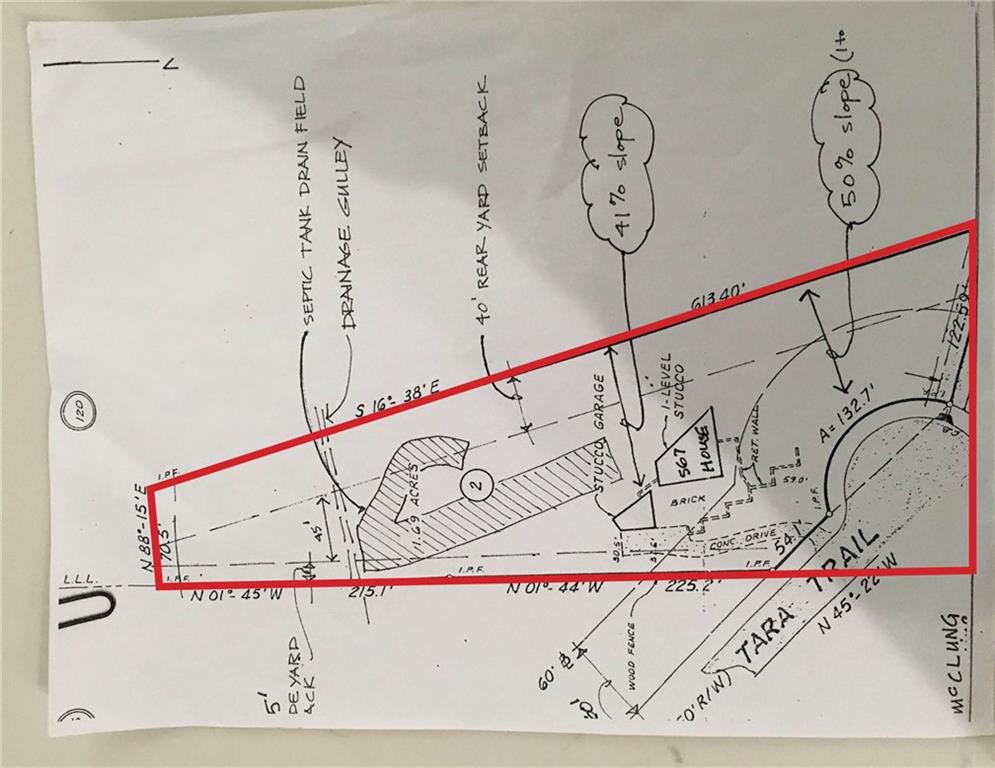 120
SEPTIC TANK DRAIN FIELD
DRAINAGE GULLEY
40' REAR YARD SETBACK
41% slope
50% slope (1 to
S 16°- 38' E
613.40'
N 88°-15' E
70.5'
I.P.F.
I.P.F.
L.L.L.
N 01°- 45' W
215.1'
45'
1.69 ACRES
2
I.P.F.
N 01°- 44' W
225.2'
STUCCO GARAGE
1-LEVEL
STUCCO
567
HOUSE
BRICK
RET. WALL
590'
CONC. DRIVE
I.P.F.
54.1'
I.P.F.
A = 132.7'
122.59'
TARA TRAIL
N 45°- 22' W
WOOD FENCE
60'
0' R/W)
5'
DE YARD
ACK
McCLUNG